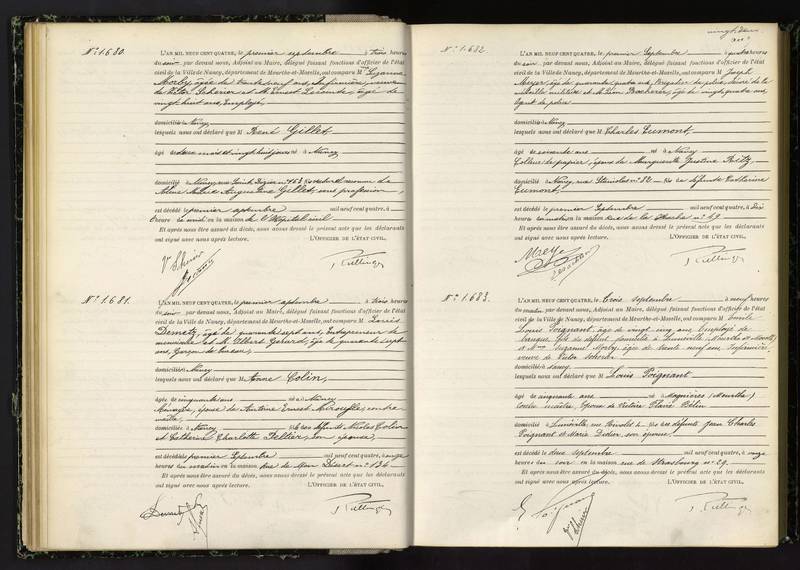 N° 1.680.
L'AN MIL NEUF CENT QUATRE, le premier septembre à trois heures
du soir par devant nous, Adjoint au Maire, délégué faisant fonctions d'officier de l'état
civil de la Ville de Nancy, département de Meurthe-et-Moselle, ont comparu Mme Suzanne
Morby, âgée de trente neuf ans, infirmière, veuve
de Victor Scherier et M. Ernest Lecomte, âgé de
vingt huit ans, Employé,
domiciliés à Nancy
lesquels nous ont déclaré que M René Gillet,
âgé de deux mois et vingt huit jours né à Nancy
domicilié à Nancy, rue Saint Dizier n° 153
Gillet, sans profession,
est décédé le premier septembre mil neuf cent quatre, à
heure du midi en la maison de l'Hôpital civil
Et après nous être assuré du décès, nous avons dressé le présent acte que les déclarants
ont signé avec nous après lecture. L'OFFICIER DE L'ÉTAT CIVIL,
N° 1.681.
L'AN MIL NEUF CENT QUATRE, le premier septembre à trois heures
du soir par devant nous, Adjoint au Maire, délégué faisant fonctions d'officier de l'état
civil de la Ville de Nancy, département de Meurthe-et-Moselle, ont comparu M Louis
Demetz, âgé de quarante sept ans, Entrepreneur de
menuiserie et M. Albert Gérard, âgé de quarante sept
ans, Garçon de bureau,
domiciliés à Nancy
lesquels nous ont déclaré que M Anne Colin,
âgée de cinquante ans née à Nancy
Ménagère, épouse de Antoine Ernest contre
maître,
domiciliée à Nancy fille de défunts Nicolas Colin
et Catherine Charlotte Peltier, son épouse,
est décédée le premier Septembre mil neuf cent quatre, à onze
heures du matin en la maison Rue de Mon Désert n° 136
Et après nous être assuré du décès, nous avons dressé le présent acte que les déclarants
ont signé avec nous après lecture. L'OFFICIER DE L'ÉTAT CIVIL,
vingt deux
ans
N° 1.682.
L'AN MIL NEUF CENT QUATRE, le premier Septembre à quatre heures
du soir par devant nous, Adjoint au Maire, délégué faisant fonctions d'officier de l'état
civil de la Ville de Nancy, département de Meurthe-et-Moselle, ont comparu M Joseph
Meyer âgé de quarante quatre ans, Brigadier de police, décoré de la
médaille militaire et M. Léon âgé de vingt quatre ans,
Agent de police
domiciliés à Nancy
lesquels nous ont déclaré que M Charles Eumont,
âgé de soixante ans né à Nancy
Colleur de papier, époux de Marguerite Justine
domicilié à Nancy, rue Stanislas n° 82 fils de défunte Catherine
Eumont,
est décédé le premier Septembre mil neuf cent quatre, à dix
heures du matin en la maison Rue de n° 19
Et après nous être assuré du décès, nous avons dressé le présent acte que les déclarants
ont signé avec nous après lecture. L'OFFICIER DE L'ÉTAT CIVIL,
Meyer
N° 1.683.
L'AN MIL NEUF CENT QUATRE, le trois septembre à neuf heures
du matin par devant nous, Adjoint au Maire, délégué faisant fonctions d'officier de l'état
civil de la Ville de Nancy, département de Meurthe-et-Moselle, ont comparu M Emile
Louis Poignant, âgé de vingt cinq ans, Employé de
banque, fils du défunt, domicilié à Lunéville, (Meurthe et Moselle)
et Mme Suzanne Morby, âgée de trente neuf ans, Infirmière,
veuve de Victor Scherier
domiciliée à Nancy
lesquels nous ont déclaré que M Louis Poignant
âgé de cinquante ans né à Magnières (Meurthe)
contre maître, époux de Victoire Marie Bétin
domicilié à Lunéville, rue Rivolet fils des défunts Jean Charles
Poignant et Marie Didier, son épouse
est décédé le deux septembre mil neuf cent quatre, à onze
heures du soir en la maison rue de Strasbourg n° 29
Et après nous être assuré du décès, nous avons dressé le présent acte que les déclarants
ont signé avec nous après lecture. L'OFFICIER DE L'ÉTAT CIVIL,
E. Poignant